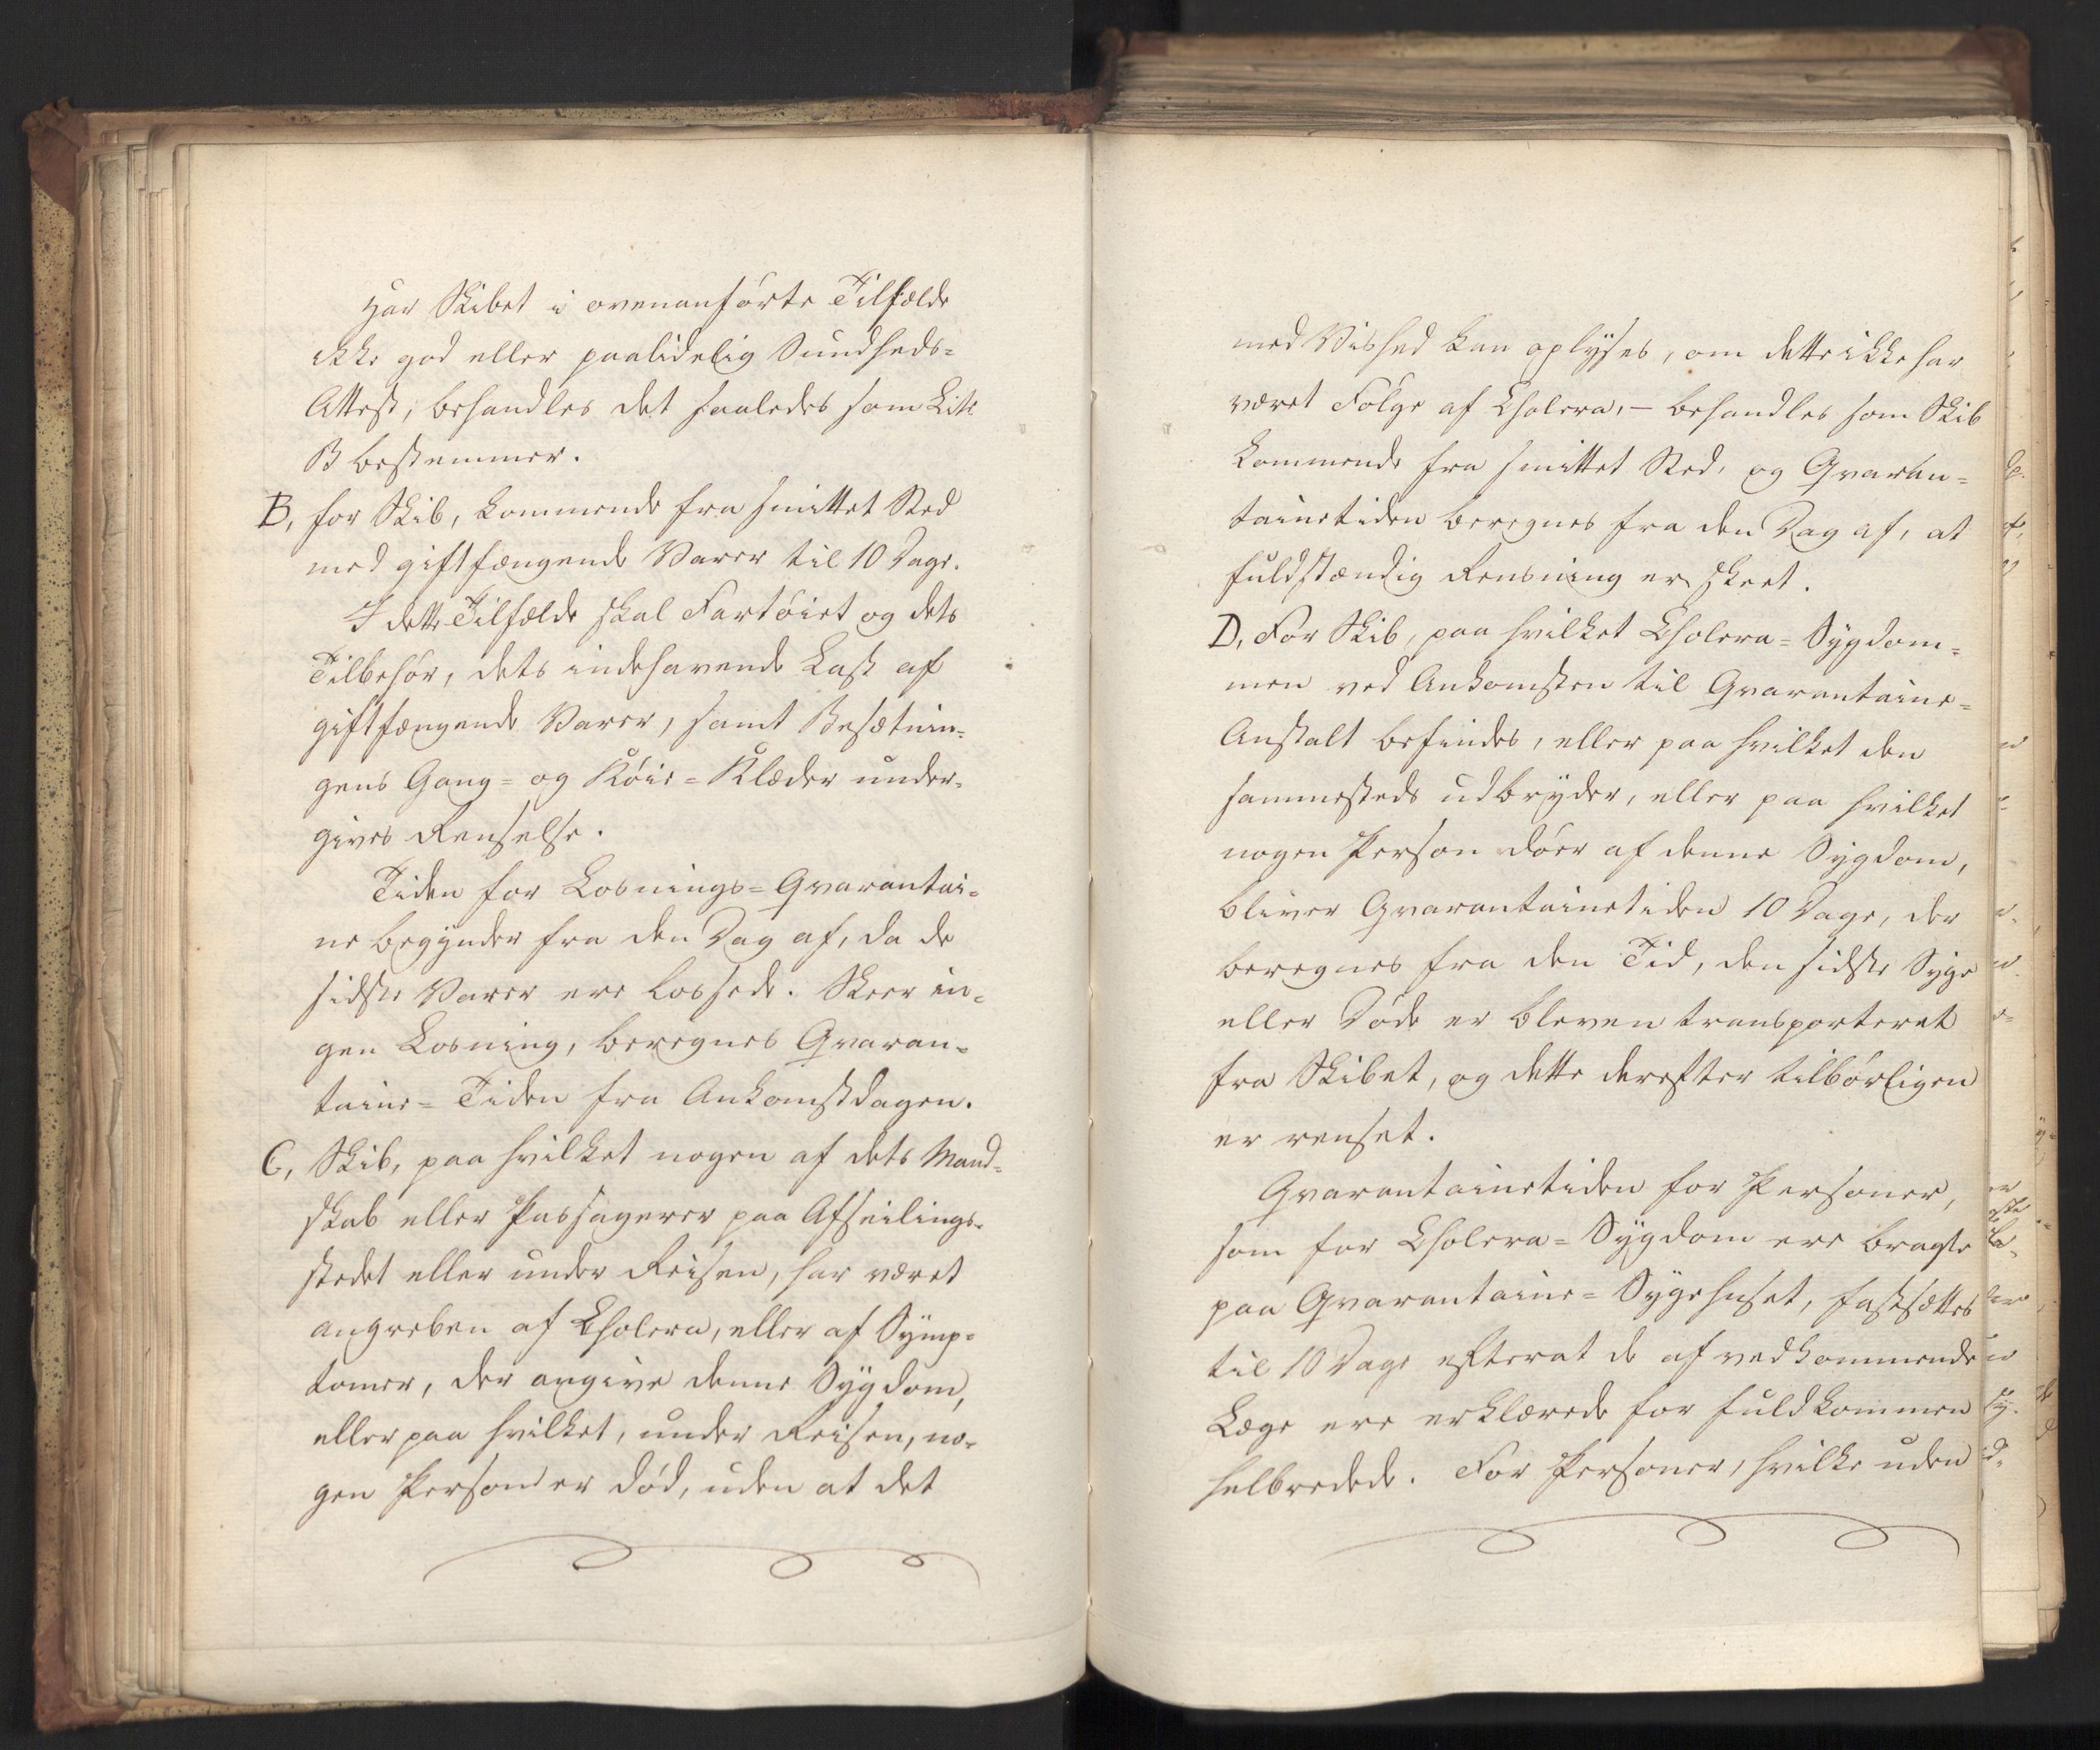 Har Skibet i ovenanførte Tilfælde
ikke god eller paalidelig Sundheds=
Attest, behandles det saaledes som Litr
B bestemmer.
B, for Skib, kommende fra smittet Sted
med giftfængende Varer til 10 Dage.
I dette Tilfælde skal Fartøiet og dets
Tilbehør, dets indehavende Last af
giftfængende Varer, samt Besætnin=
gens Gang= og Køie=Klæder under=
gives Renselse.
Tiden for Losnings=Qvarantai=
ne begynder fra den Dag af, da de
sidste Varer ere lossede. Skeer in=
gen Losning, beregnes Qvaran=
taine=Tiden fra Ankomstdagen.
C, Skib, paa hvilket nogen af dets Mand=
skab eller Passagerer paa Afseilings=
stedet eller under Reisen, har været
angreben af Cholera, eller af Symp=
tomer, der angive denne Sygdom,
eller paa hvilket, under Reisen, no=
gen Person er død, uden at det
med Vished kan oplyses, om dette ikke har
været Følge af Cholera, — behandles som Skib
kommende fra smittet Sted, og Qvaran=
tainetiden beregnes fra den Dag af, at
fuldstændig Rensning er skeet.
D, For Skib, paa hvilket Cholera=Sygdom=
men ved Ankomsten til Qvarantaine=
Anstalt befindes, eller paa hvilket den
sammesteds udbryder, eller paa hvilket
nogen Person døer af denne Sygdom,
bliver Qvarantainetiden 10 Dage, der
beregnes fra den Tid, den sidste Syge
eller Døde er bleven transporteret
fra Skibet, og dette derefter tilbørligen
er renset.
Qvarantainetiden for Personer,
som for Cholera=Sygdom ere bragte
paa Qvarantaine=Sygehuset, fastsættes
til 10 Dage efterat de af vedkommende
Læge ere erklærede for fuldkommen
helbredede. For Personer, hvilke uden